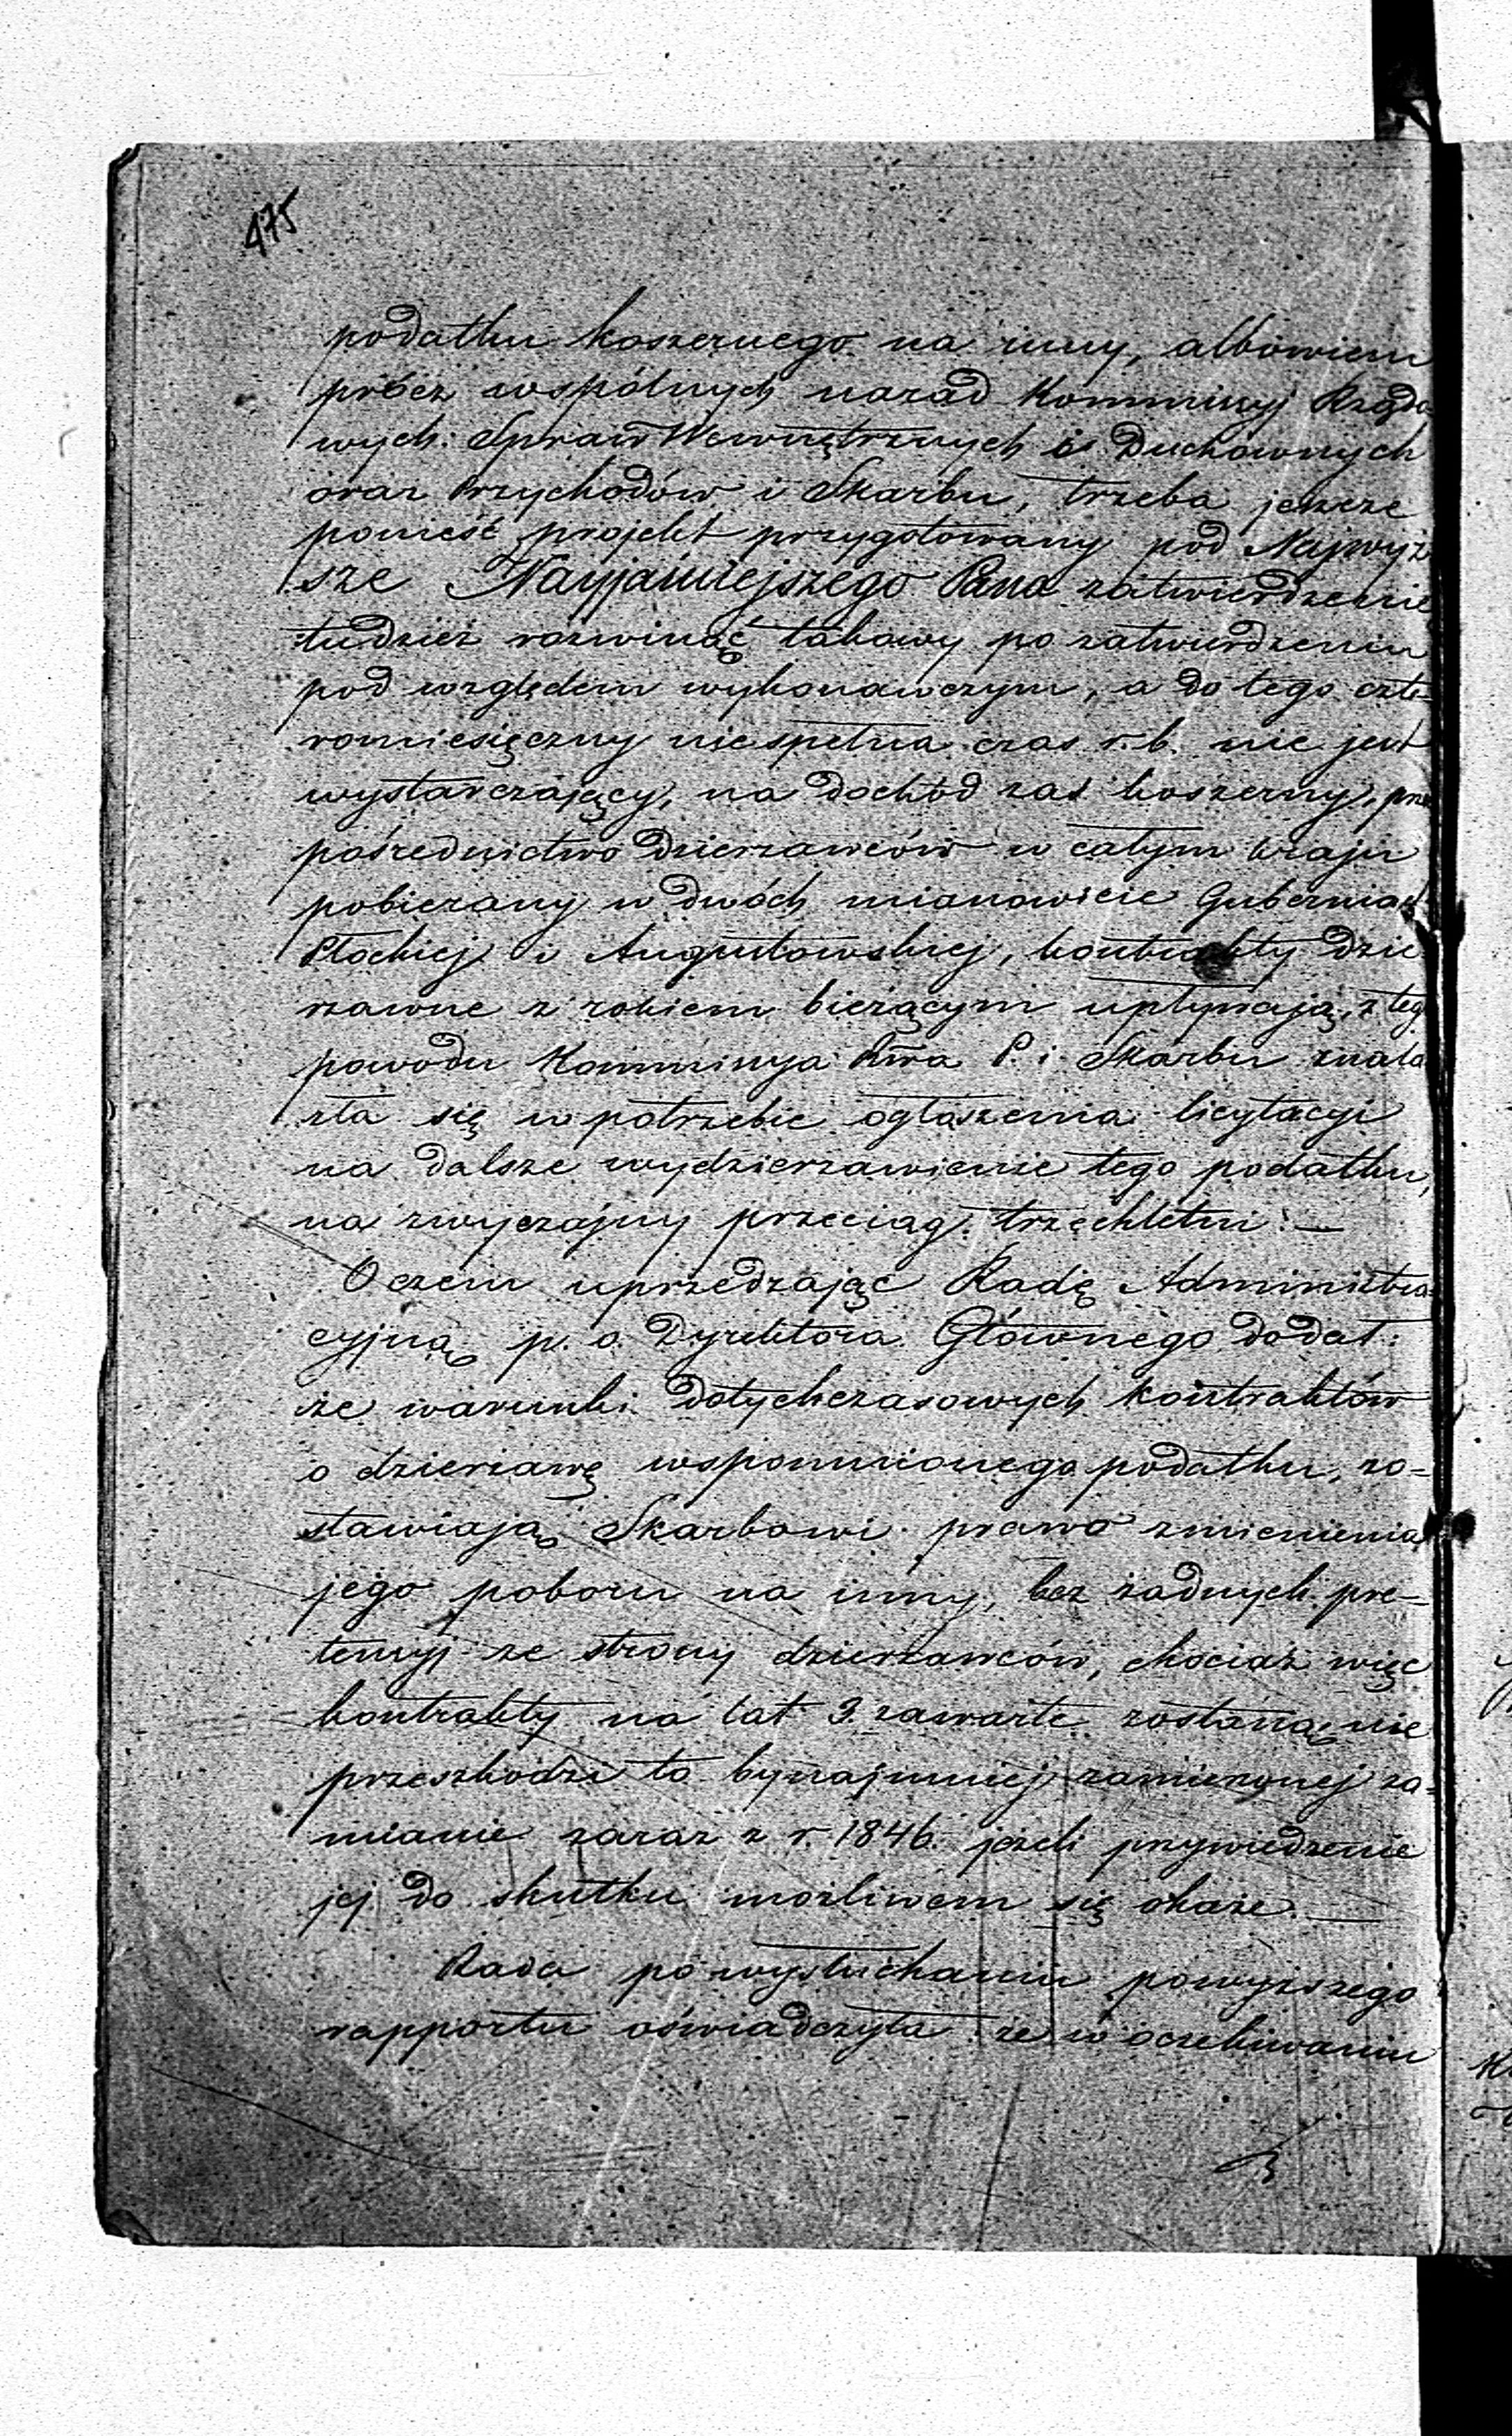 475
podatku koszernego na inny, albowiem
prócz wspólnych narad Kommissyj Rządo
wych: Spraw Wewnętrznych i Duchownych
oraz Przychodów i Skarbu, trzeba jeszcze
ponieść projekt przygotowany pod Najwyż
sze Najjaśniejszego Pana zatwierdzenie
tudzież rozwinąć takowy po zatwierdzeniu
pod względem wykonawczym, a do tego czte-
romiesięczny niespełna czas r. b. nie jest
wystarczający, na dochód zaś koszerny, prze
pośrednictwo Dzierżawców w całym kraju
pobierany w dwóch mianowicie Guberniach
Płockiej i Augustowskiej, kontrakty dzie
rżawne z rokiem bieżącym upływają, z tego
powodu Kommissya Rwa P. i Skarbu znala
zła się w potrzebie ogłoszenia licytacyi
na dalsze wydzierżawienie tego podatku,
na zwyczajny przeciąg trzechletni. —
O czem uprzedzając Radę Administra-
cyjną p. o. Dyrektora Głównego dodał:
że warunki dotychczasowych kontraktów
o dzierżawę wspomnionego podatku, zo-
stawiają Skarbowi prawo zmienienia
jego poboru na inny, bez żadnych pre-
tensyj ze strony dzierżawców, chociaż więc
kontrakty na lat 3. zawarte zostaną, nie
przeszkodzi to bynajmniej zamierzonej za-
mianie zaraz z r. 1846. jeżeli przywiedzenie
jej do skutku możliwem się okaże. —
Rada po wysłuchaniu powyższego
rapportu oświadczyła że w oczekiwaniu